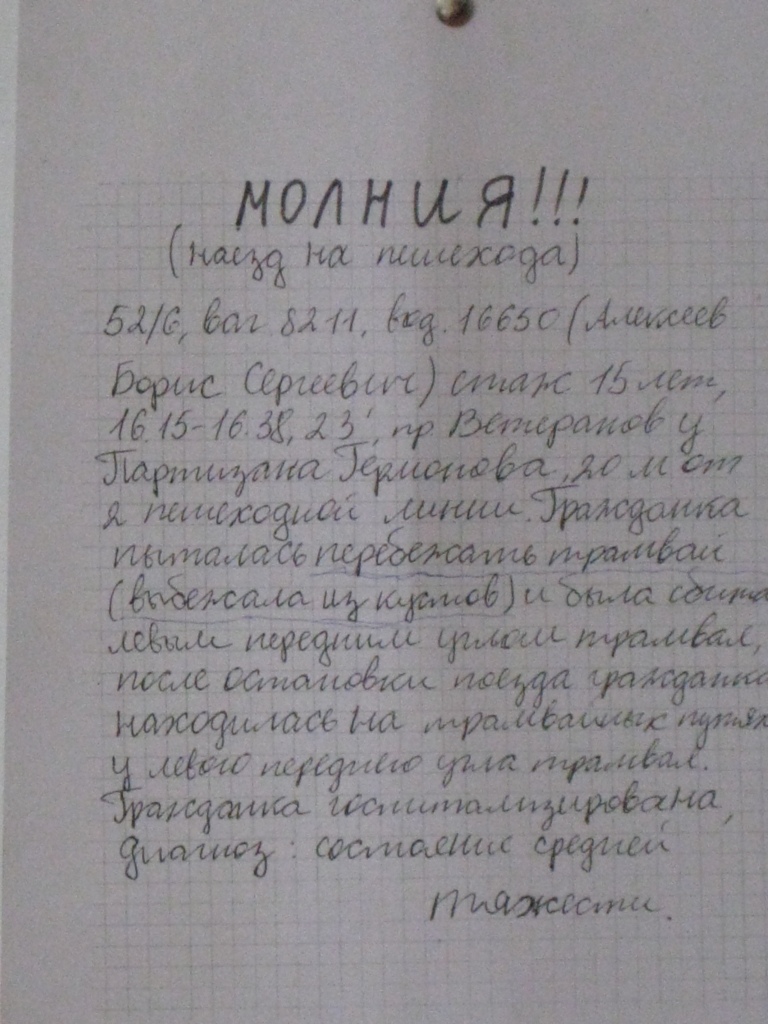 МОЛНИЯ!!!
(наезд на пешехода)
52/6, ваг. 8211, вод. 16650 (Алексеев
Борис Сергеевич) стаж 15 лет,
16.15-16.38, 23', пр. Ветеранов у
Партизана Германова, 20 м от
2 пешеходной линии. Гражданка
пыталась перебежать трамвай
(выбежала из кустов) и была сбита
левым передним углом трамвая,
после остановки поезда гражданка
находилась на трамвайных путях
у левого переднего угла трамвая.
Гражданка госпитализирована,
диагноз: состояние средней
тяжести.